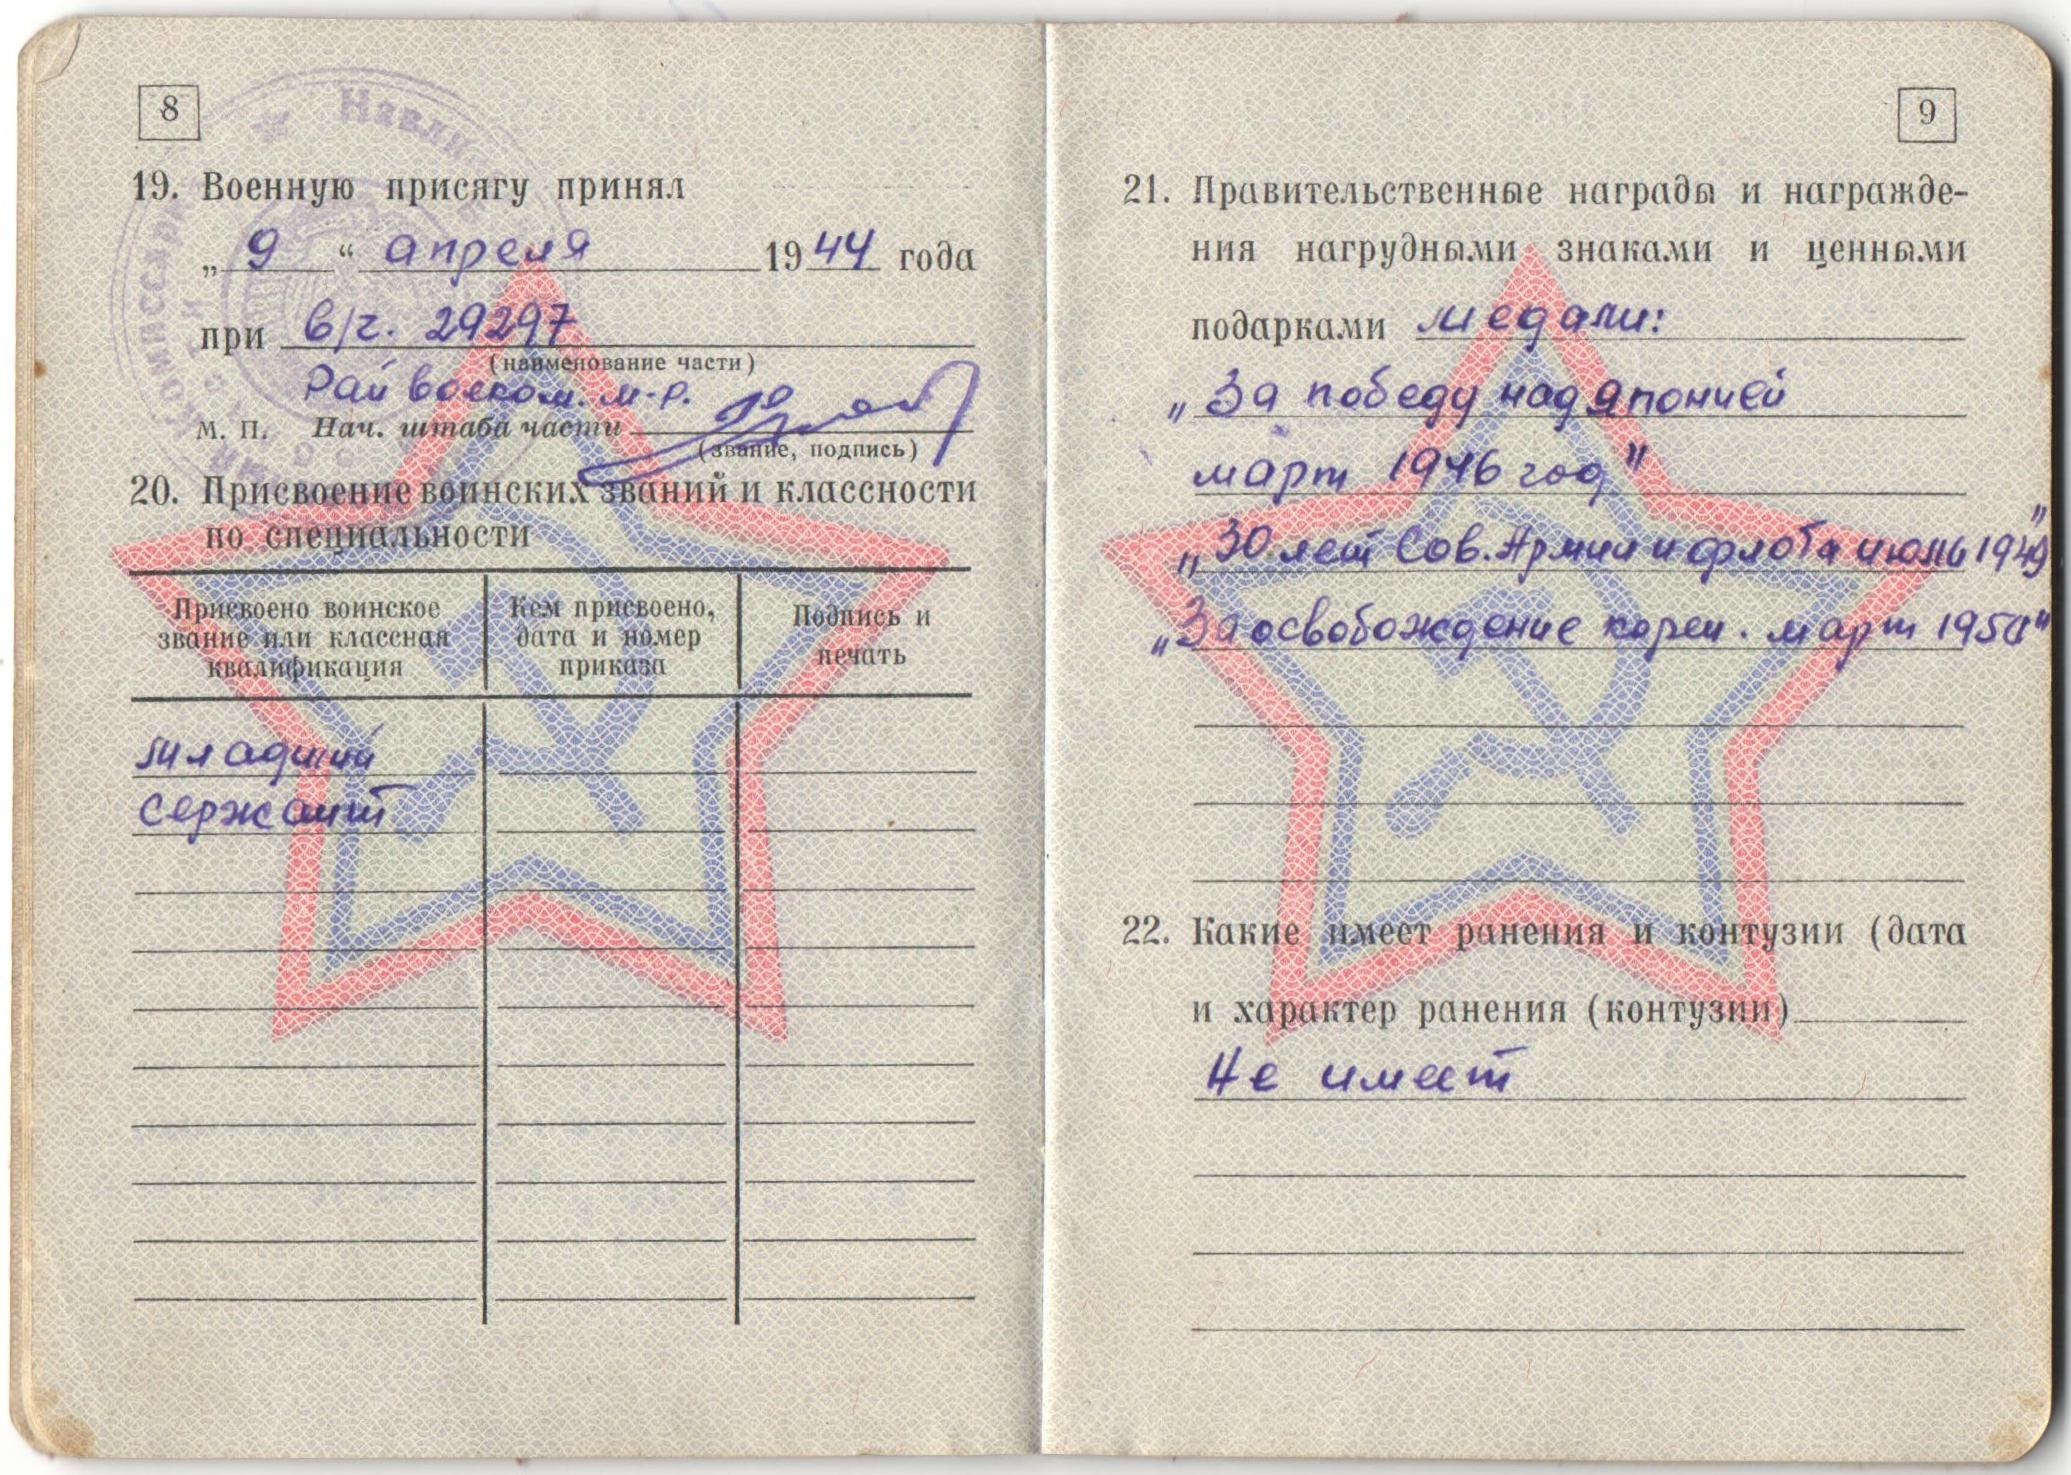 8
19. Военную присягу принял
„ 9 “ апреля 1944 года
при в/ч. 29297
(наименование части)
Райвоенком. м-р.
М. П. Нач. штаба части
(звание, подпись)
20. Присвоение воинских званий и классности
по специальности
Присвоено воинское
звание или классная
квалификация
Кем присвоено,
дата и номер
приказа
Подпись и
печать
младший
сержант
9
21. Правительственные награды и награжде-
ния нагрудными знаками и ценными
подарками медали:
„За победу над японией
март 1946 год"
„30 лет Сов. Армии и флота июль 1949"
„За освобождение кореи. март 1950"
22. Какие имеет ранения и контузии (дата
и характер ранения (контузии)
Не имеет